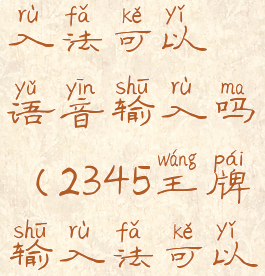 rù fǎ kě yǐ
入法可以
yǔ yīn shū rù ma
语音输入吗
wáng pái
(2345王牌
shū rù fǎ kě yǐ
输入法可以